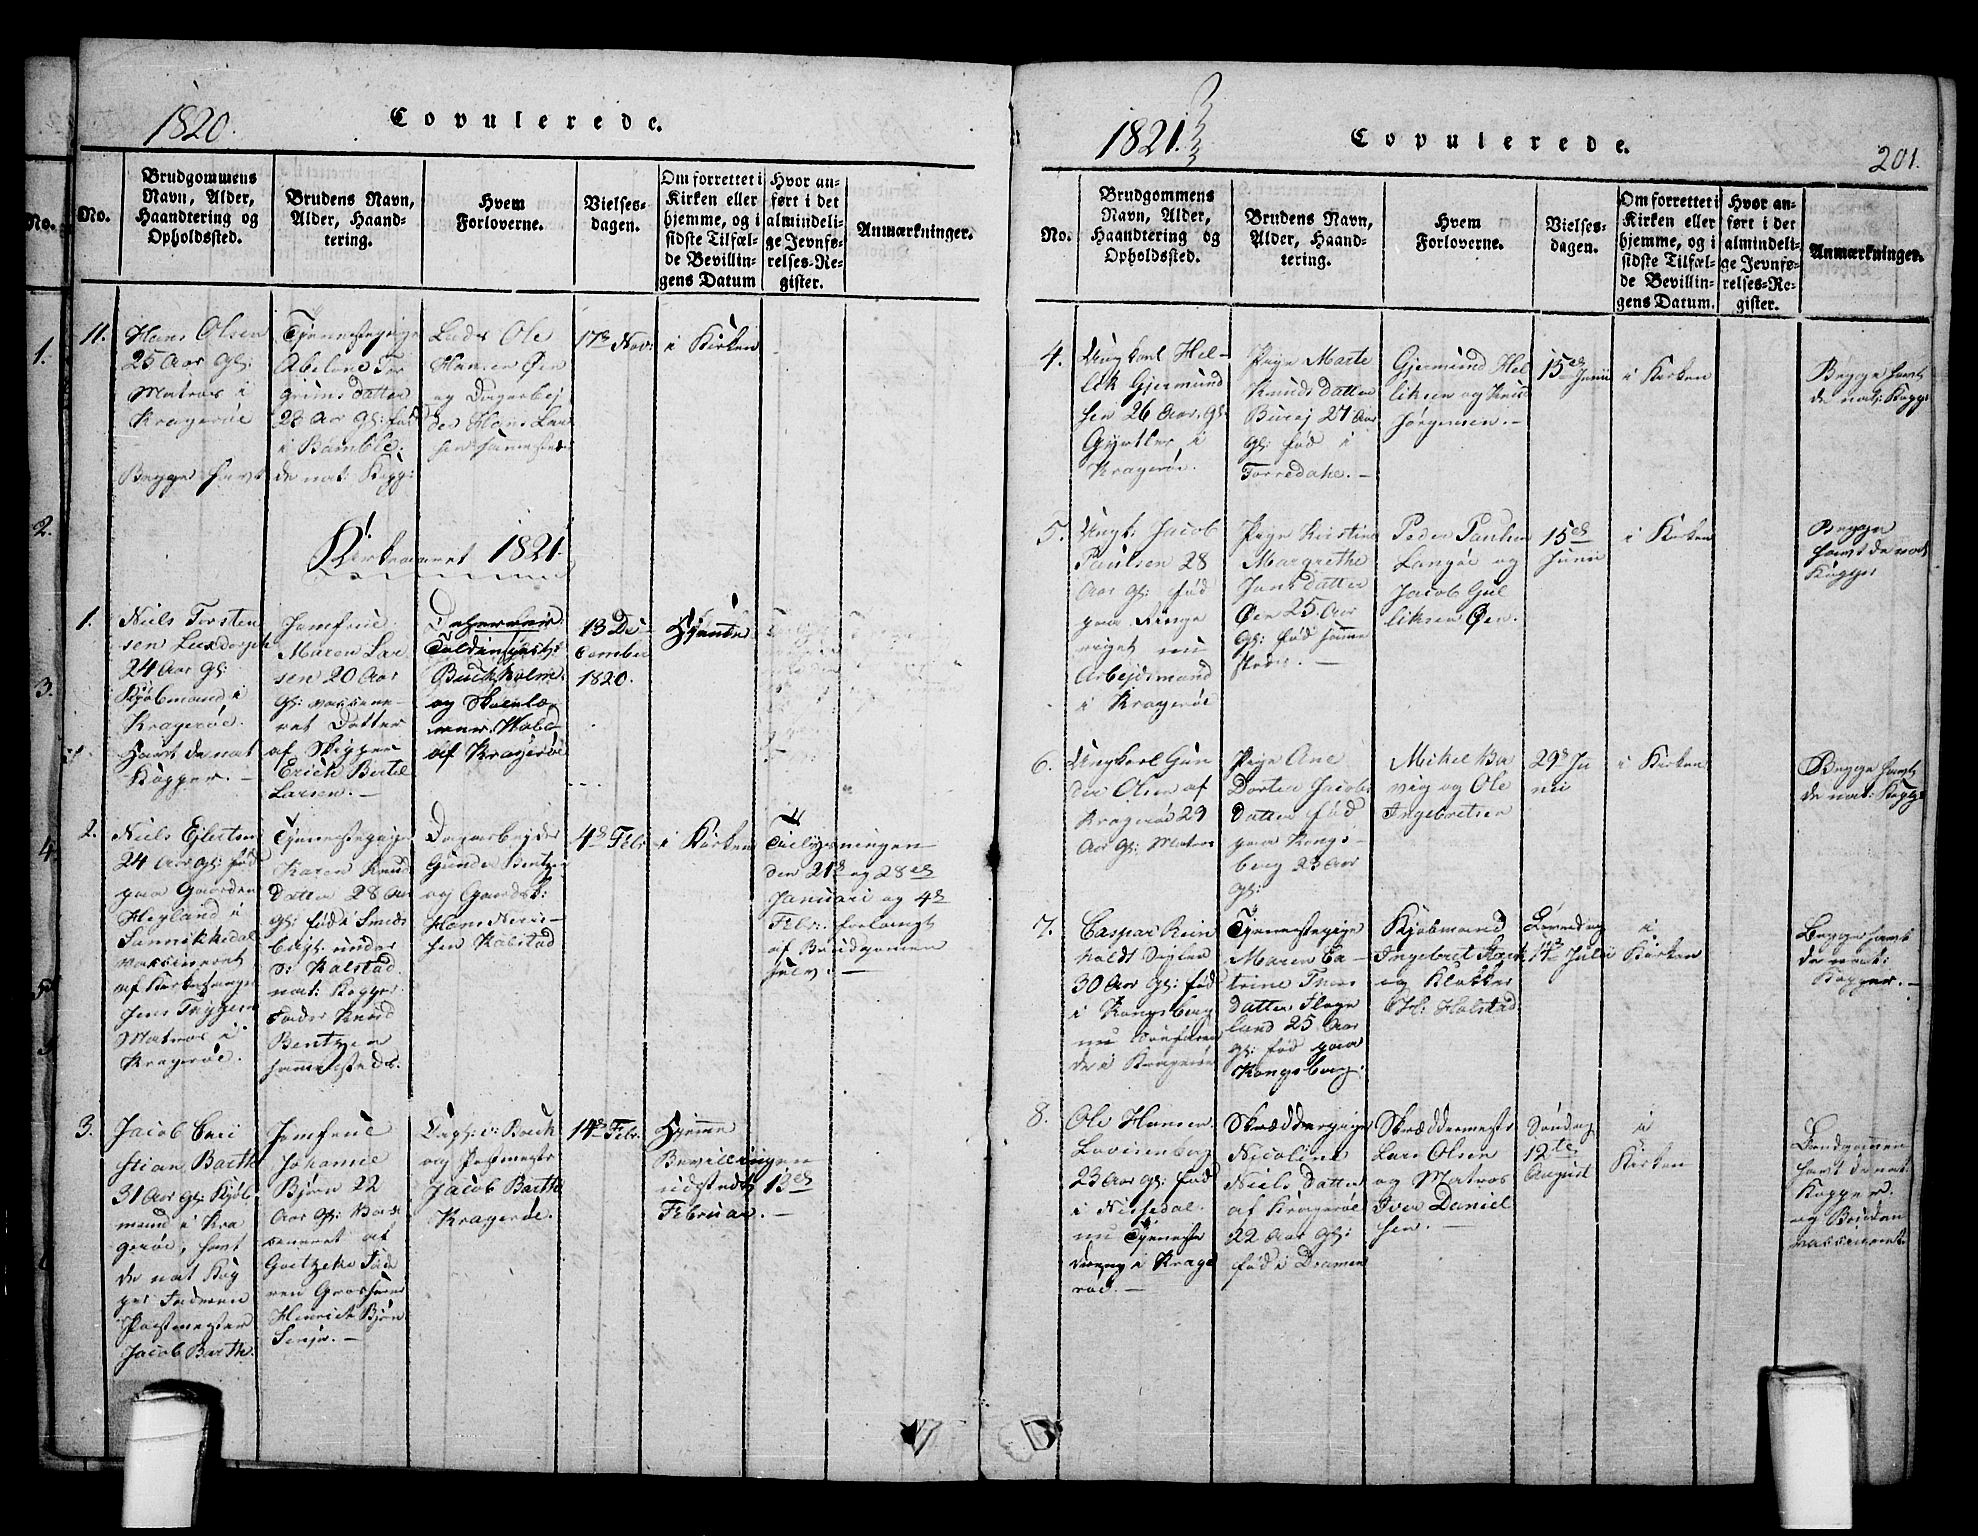 1820.
Copulerede.
No.
Brudgommens
Navn, Alder,
Haandtering og
Opholdssted.
Brudens Navn,
Alder, Haand-
tering.
Hvem
Forloverne.
Vielses-
dagen.
Om forrettet i
Kirken eller
hjemme, og i
sidste Tilfæl-
de Bevillin-
gens Datum
Hvor an-
ført i det
almindeli-
ge Jevnfø-
relses-Re-
gister.
Anmærkninger.
11.
Hans Olsen
25 Aar gl:
Matros i
Kragerøe
Tjenestepige
Abelone Tor
grims datter
28 Aar gl: fød
i Bamble.
Lods Ole
Hansen Øen
og Dagarbej
der Hans Lar
sen sammesteds
17de Nov:
i Kirken
Begge havt de nat: Kopp:
Kirkeaaret 1821.
1.
Niels Torsten
sen
24 Aar gl:
Kjøbmand i
Kragerøe.
Havt de nat
Kopper. —
Jomfrue
Maren Lar
sen 20 Aar
gl: vaccine-
ret Datter
af Skipper
Erich Bertel
Larsen. —
Buckholm
og
af Kragerøe
13 De
cember
1820.
Hjemme
2.
Niels Eilertsen
24 Aar gl: fød
paa Gaarden
Heyland i
Sannikkedal
vaccineret
af
Jens Tryggesen
Matros i
Kragerøe.
Tjenestepige
Karen Knud
Datter 28 Aar
gl: fød i Smeds
bugt: under
Kalstad
nat: Kopper
Fader Knud
Bentzen
sammesteds.
Dagarbejder
Gunder Bentzen
og Gaardbr:
Hans
sen Kalstad
4de Febr:
i Kirken
Tillysningen
den 21de og 28de
Januari og 4de
Febr: forlangt
af Brudgomen
selv. —
3.
Jacob Cri
stian Barth
31 Aar gl: Kjøb
mand i Kra
gerøe, havt
de nat Kop
per Faderen
Postmester
Jacob Barth.
Jomfrue
Johanne
Bjørn 22
Aar gl: Vac
cineret af
Goetzche Fade
ren Grosserer
Henrich Bjørn
Senjor. —
og Postmester
Jacob Barth
Kragerøe.
14de Febr:
Hjemme
Bevillingen
udstedt 13de
Februar. —
1821.
Copulerede.
201.
No.
Brudgommens
Navn, Alder,
Haandtering og
Opholdssted.
Brudens Navn,
Alder, Haand-
tering.
Hvem
Forloverne.
Vielses-
dagen.
Om forrettet i
Kirken eller
hjemme, og i
sidste Tilfæl-
de Bevillin-
gens Datum.
Hvor an-
ført i det
almindeli-
ge Jevnfø-
relses-Re-
gister.
Anmærkninger.
4.
Ungkarl Hel-
lik Gjermund
sen 26 Aar gl:
Gjørtler i
Kragerøe.
Pige Marte
Knuds Datter
Buraj 27 Aar
gl: fød i
Torredahl. —
Gjermund Hel
liksen og Knud
Jørgensen. —
15de Junii
i Kirken
Begge havt
de nat: Kopp:
5.
Ungk: Jacob
Paulsen 28
Aar gl: fød
paa Ringe
riget nu
Arbejdsmand
i Kragerøe
Pige Kirstine
Margrethe
Jans datter
Øen 25 Aar
gl: fød samme
steds. —
Peder Paulsen
Langøe og
Jacob Gul
liksen Øen.
15de
Junii
i Kirken
Begge
havt de nat
Kopper
6.
Ungkarl Gun
der Olsen af
Kragerøe 29
Aar gl: Matros
Pige Ane
Dortea Jacobs
datter fød
paa Kongs-
berg 23 Aar
gl:
Mikel Bar
vig og Ole
Ingebretsen
29de Ju
nii
i Kirken
Begge havt
de nat: Kopp:
7.
Caspar Rein
holdt Sigler
30 Aar gl: fød
i Kongsberg
nu
de i Kragerøe
Tjenestepige
Maren Ca-
trine Thors
datter Flage
land 25 Aar
gl: fød paa
Kongsberg.
Kjøbmand
Ingebret
og Klokker
H: Halstad
Løverdag
14de Julii
i
Kirken
Begge havt
de nat:
Kopper. —
8.
Ole Hansen
Lovisenberg
23 Aar gl: fød
i Nissedal.
nu Tjeneste
dreng i Krage
røe. —
Skræderpige
Nicoline
Niels Datter
af Kragerøe
22 Aar gl:
fød i Dramen
Skræddermester
Lars Olsen
og Matros
Iver Daniel
sen. —
Søndag
12te
August
i
Kirken
Brudgommen
havt de nat
Kopper.
og Bruden
vaccineret.